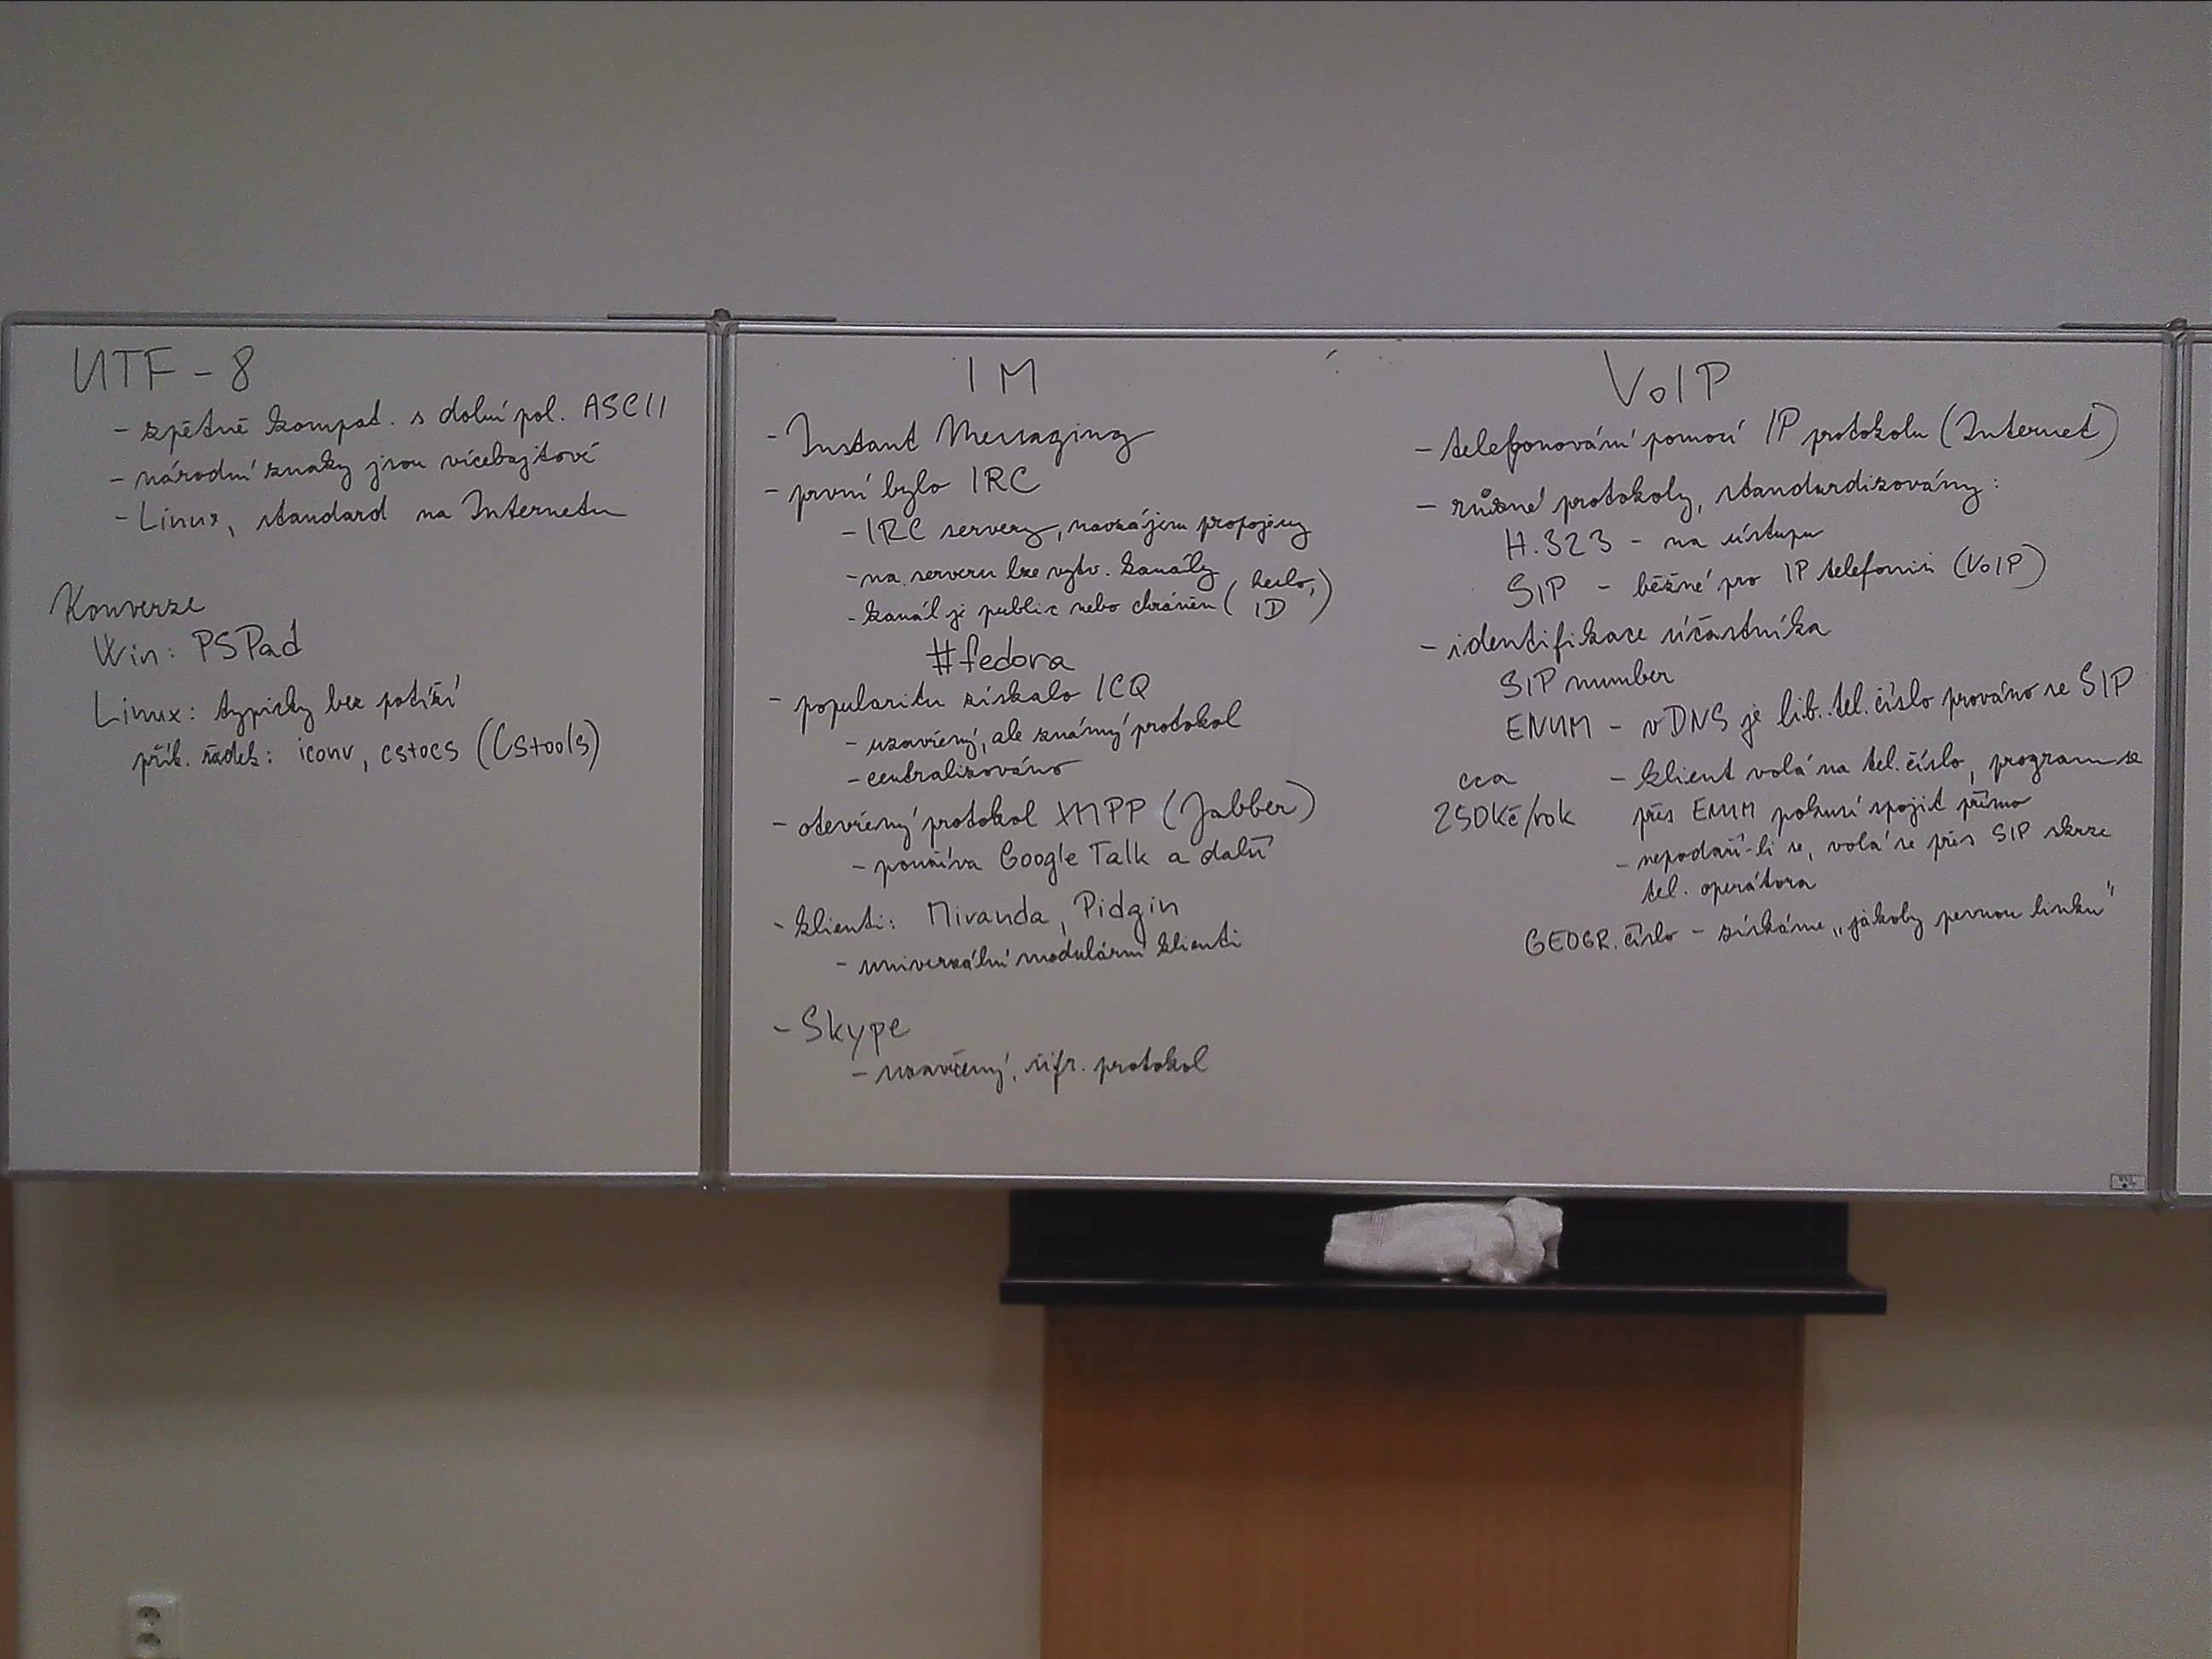 UTF-8
- zpětně kompat. s dolní pol. ASCII
- národní znaky jsou vícebajtové
- Linux, standard na Internetu
Konverze
Win: PSPad
Linux: typicky bez potíží
přík. řádek: iconv, cstocs (Cstools)
IM
- Instant Messaging
- první bylo IRC
- IRC servery, navzájem propojeny
- na serveru lze vytv. kanály
- kanál je public nebo chráněn (heslo, ID)
#fedora
- popularitu získalo ICQ
- uzavřený, ale známý protokol
- centralizováno
- otevřený protokol XMPP (Jabber)
- používa Google Talk a další
- klienti: Miranda, Pidgin
- univerzální modulární klienti
- Skype
- uzavřený, šifr. protokol
VoIP
- telefonování pomocí IP protokolu (Internet)
- různé protokoly, standardizovány:
H.323 - na ústupu
SIP - běžné pro IP telefonii (VoIP)
- identifikace účastníka
SIP number
ENUM - v DNS je lib. tel. číslo provázno se SIP
cca
250Kč/rok
- klient volá na tel. číslo, program se
přes ENUM pokusí spojit přímo
- nepodaří-li se, volá se přes SIP skrze
tel. operátora
GEOGR. číslo - získáme „jakoby pevnou linku"